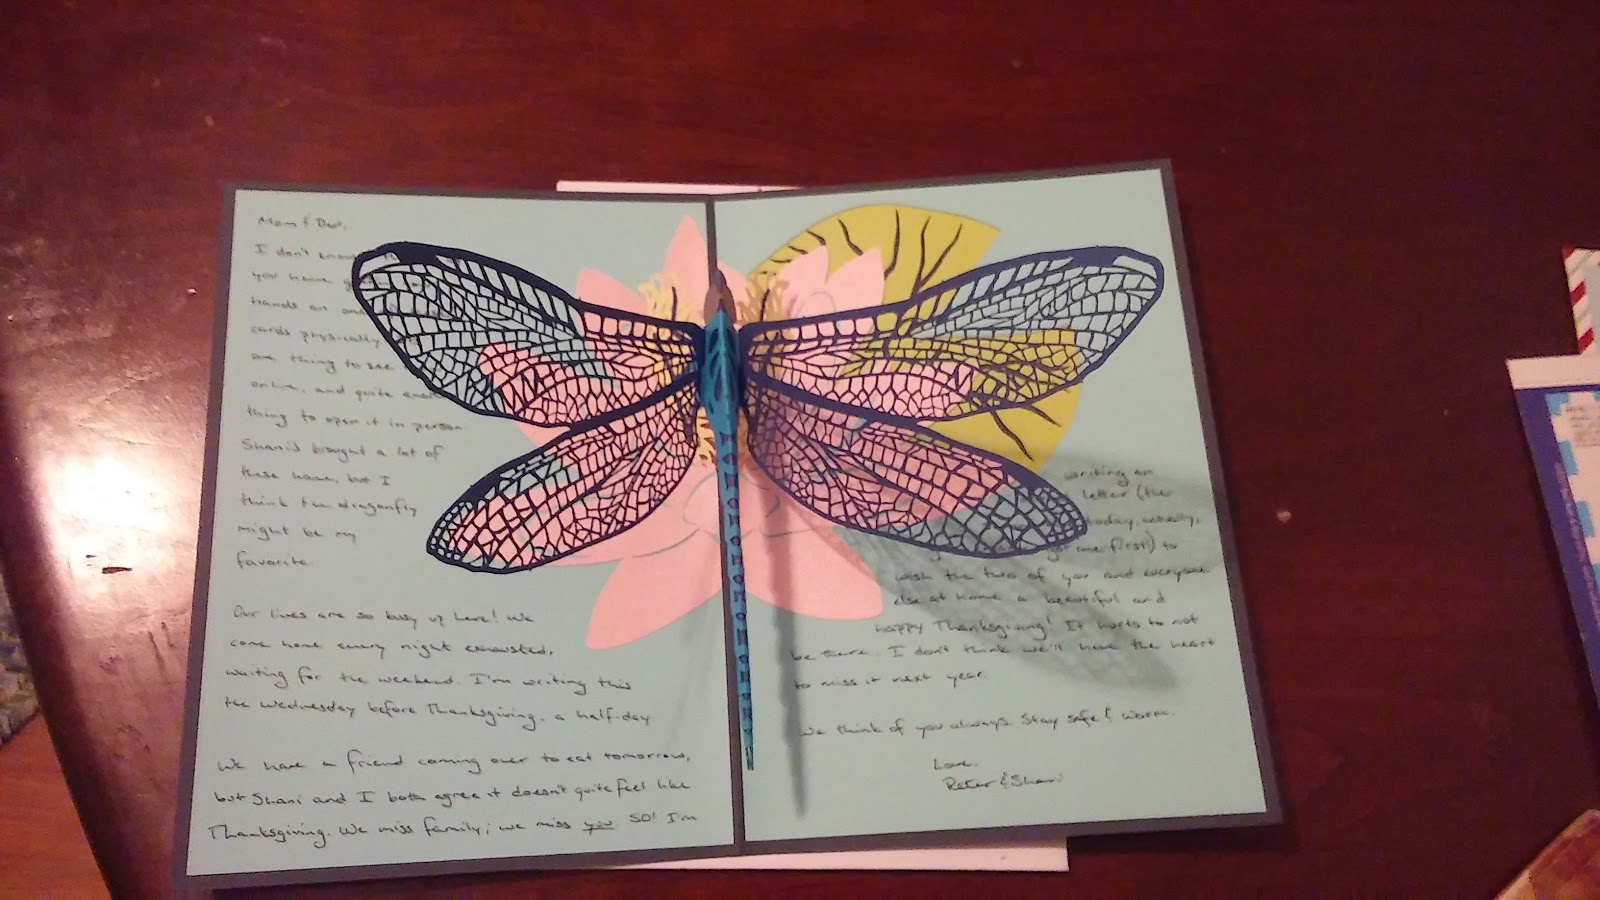 Mom & Dad,
I don't know
you have
hands on one
cards physically
one thing to see
online, and quite another
thing to open it in person
Shani's brought a lot of
these home, but I
think the dragonfly
might be my
favorite.
Our lives are so busy up here! We
come home every night exhausted,
waiting for the weekend. I'm writing this
the Wednesday before Thanksgiving, a half-day.
We have a friend coming over to eat tomorrow,
but Shani and I both agree it doesn't quite feel like
Thanksgiving. We miss family; we miss you SO! I'm
writing an
letter (the
today, actually,
me first!) to
wish the two of you and everyone
else at home a beautiful and
happy Thanksgiving! It hurts to not
be there. I don't think we'll have the heart
to miss it next year.
We think of you always. Stay safe & warm.
Love,
Peter & Shani